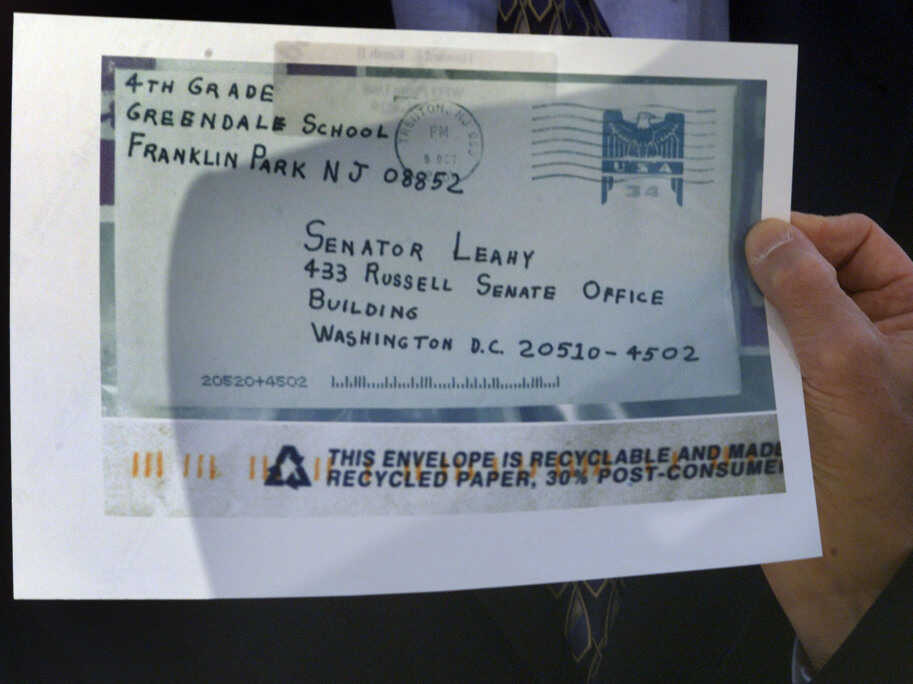 4TH GRADE
GREENDALE SCHOOL
FRANKLIN PARK NJ 08852
TRENTON, NJ
PM
USA
34
SENATOR LEAHY
433 RUSSELL SENATE OFFICE
BUILDING
WASHINGTON D.C. 20510-4502
20520+4502
THIS ENVELOPE IS RECYCLABLE AND MADE
RECYCLED PAPER, 30% POST-CONSUME